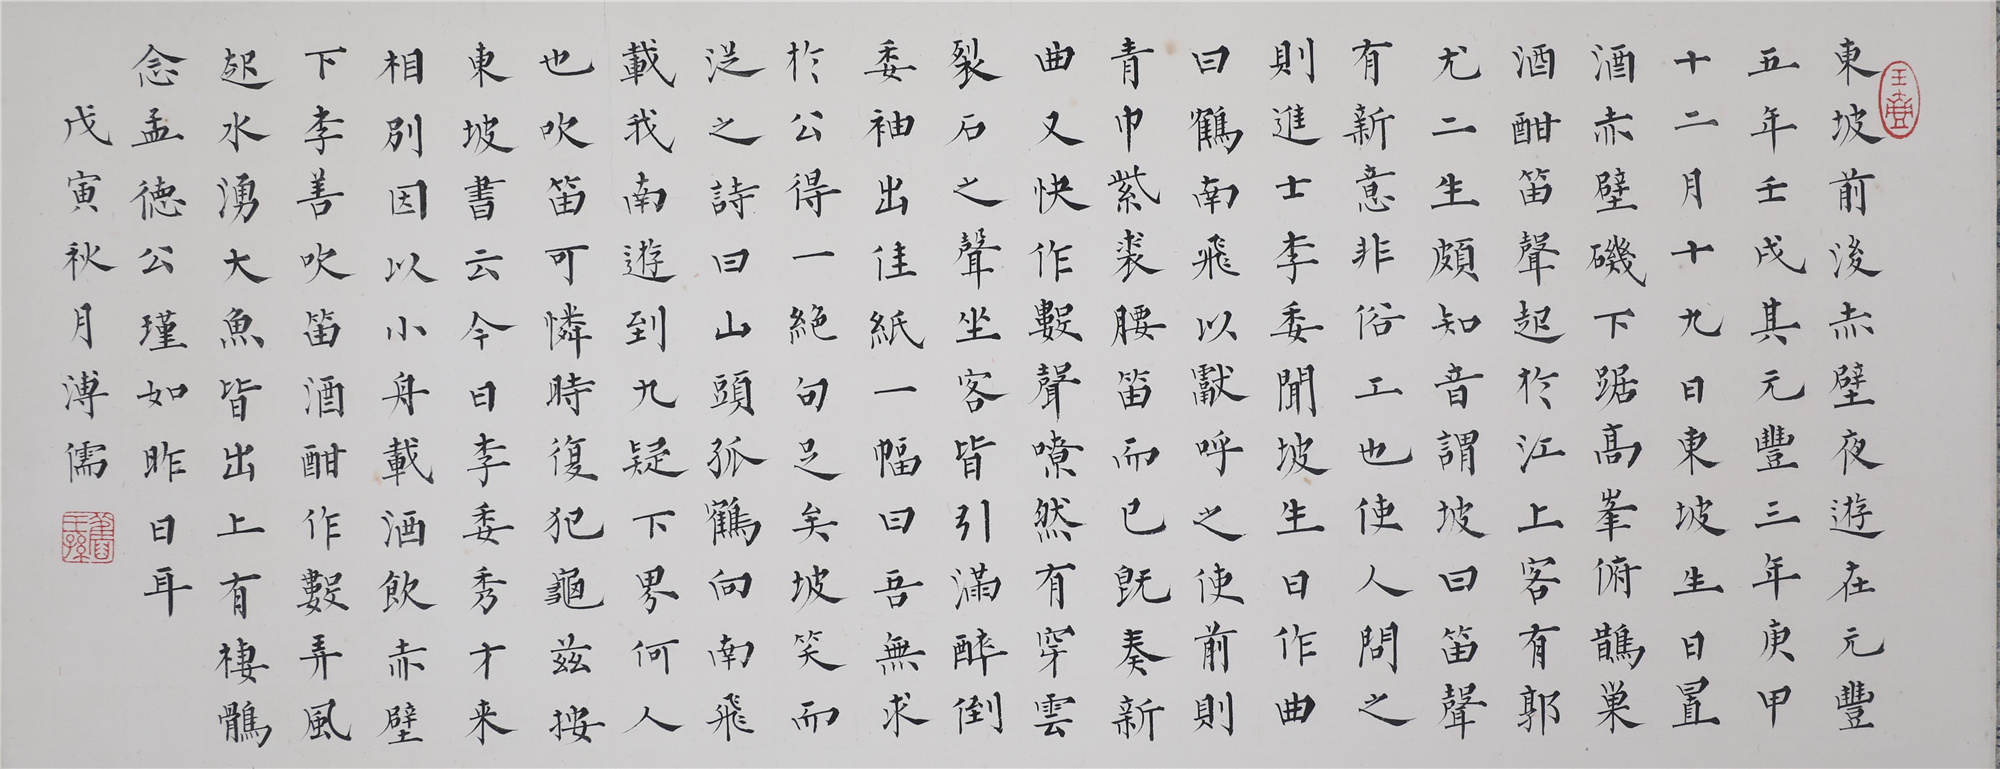 玉壺
東坡前後赤壁夜遊在元豐
五年壬戌其元豐三年庚甲
十二月十九日東坡生日置
酒赤壁磯下踞高峯俯鵲巢
酒酣笛聲起於江上客有郭
尤二生頗知音謂坡曰笛聲
有新意非俗工也使人問之
則進士李委聞坡生日作曲
曰鶴南飛以獻呼之使前則
青巾紫裘腰笛而已既奏新
曲又快作數聲嘹然有穿雲
裂石之聲坐客皆引滿醉倒
委袖出佳紙一幅曰吾無求
於公得一絕句足矣坡笑而
從之詩曰山頭孤鶴向南飛
載我南遊到九疑下界何人
也吹笛可憐時復犯龜茲按
東坡書云今日李委秀才来
相別因以小舟載酒飲赤壁
下李善吹笛酒酣作數弄風
起水湧大魚皆出上有棲鶻
念孟德公瑾如昨日耳
戊寅秋月溥儒
舊王孫